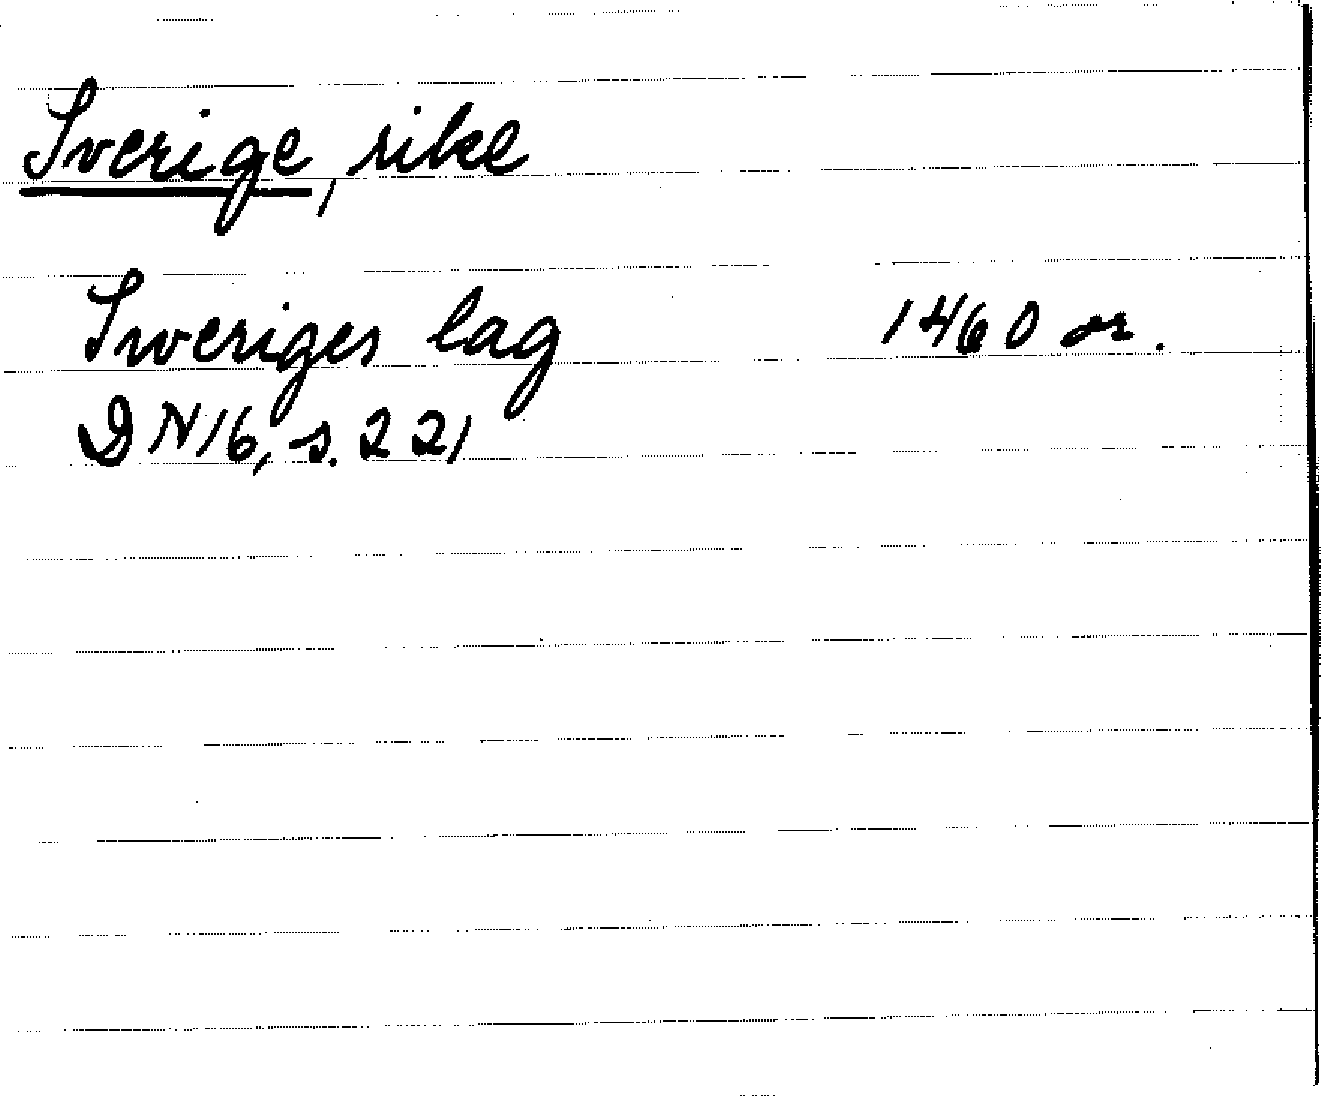 Sverige, rike
Sweriges lag 1460 or.
DN 16, s. 221